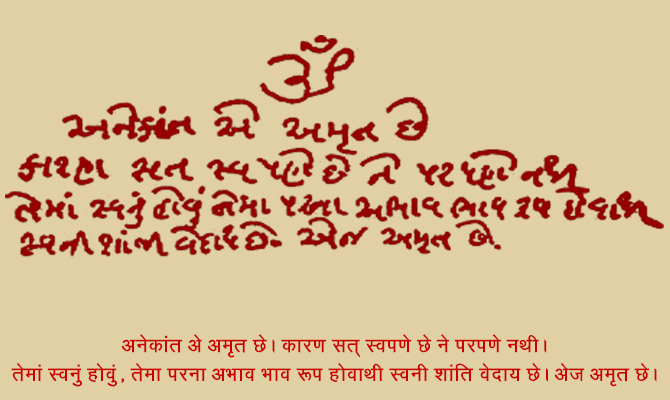 ૐ
અનેકાંત એ અમૃત છે
કારણ સત્ સ્વપણે છે ને પરપણે નથી
તેમાં સ્વનું હોવું તેમા પરના અભાવ ભાવ રૂપ હોવાથી
સ્વની શાંતિ વેદાય છે. એજ અમૃત છે.
अनेकांत अे अमृत छे। कारण सत् स्वपणे छे ने परपणे नथी।
तेमां स्वनुं होवुं, तेमा परना अभाव भाव रूप होवाथी स्वनी शांति वेदाय छे। अेज अमृत छे।